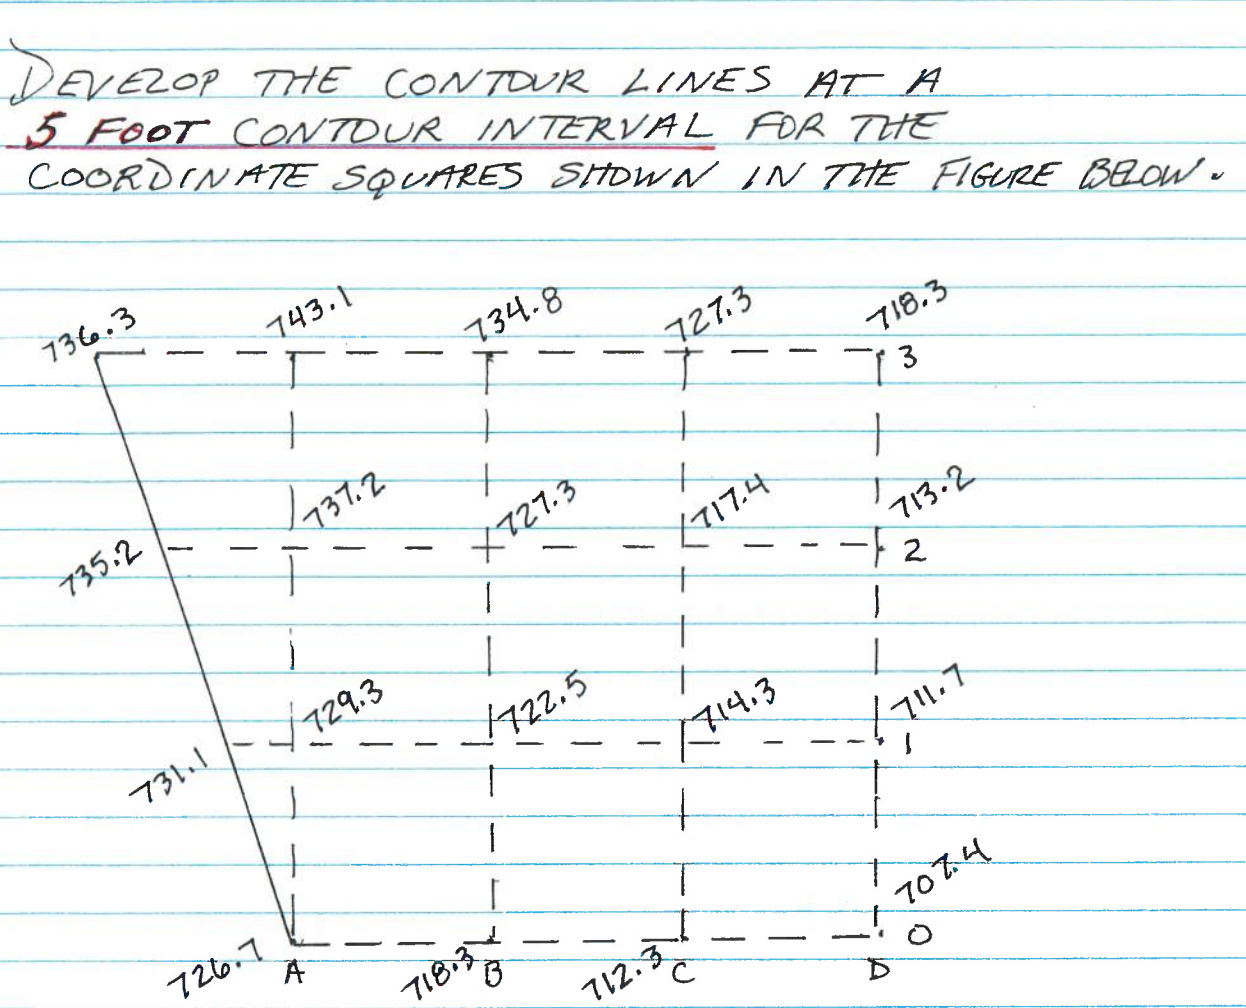 DEVELOP THE CONTOUR LINES AT A
5 FOOT CONTOUR INTERVAL FOR THE
COORDINATE SQUARES SHOWN IN THE FIGURE BELOW.
736.3 743.1 734.8 727.3 718.3
3
737.2 727.3 717.4 713.2
735.2 2
729.3 722.5 714.3 711.7
731.1 1
707.4
0
726.7 A 718.3 B 712.3 C D